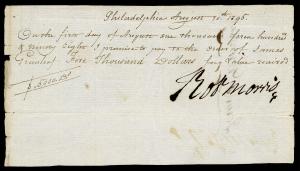 Philadelphia August 10th 1795.
On the first day of August one thousand seven hundred
& ninety eight I promise to pay to the order of James
Greenleaf Five Thousand Dollars for Value received
Robt Morris